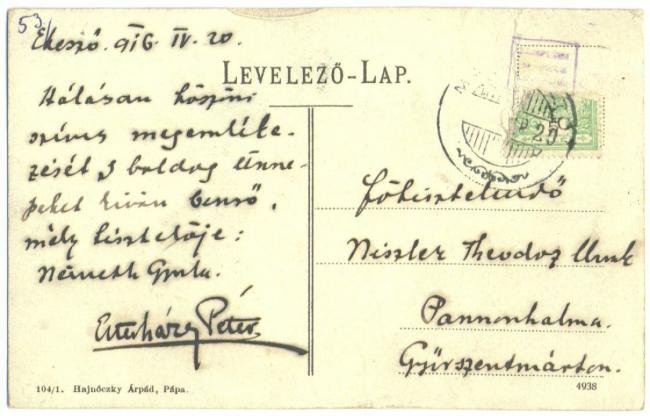 53.
Ekeső. 916. IV. 20.
LEVELEZŐ-LAP.
Hálásan köszöni
szives megemléke-
zését s boldog ünne-
peket kiván benső,
mély tisztelője:
Németh Gyula.
Esterházy Péter
Főtisztelendő
Niszler Theodoz Urnak
Pannonhalma.
Győrszentmárton.
104/1. Hajnóczky Árpád, Pápa.
4938